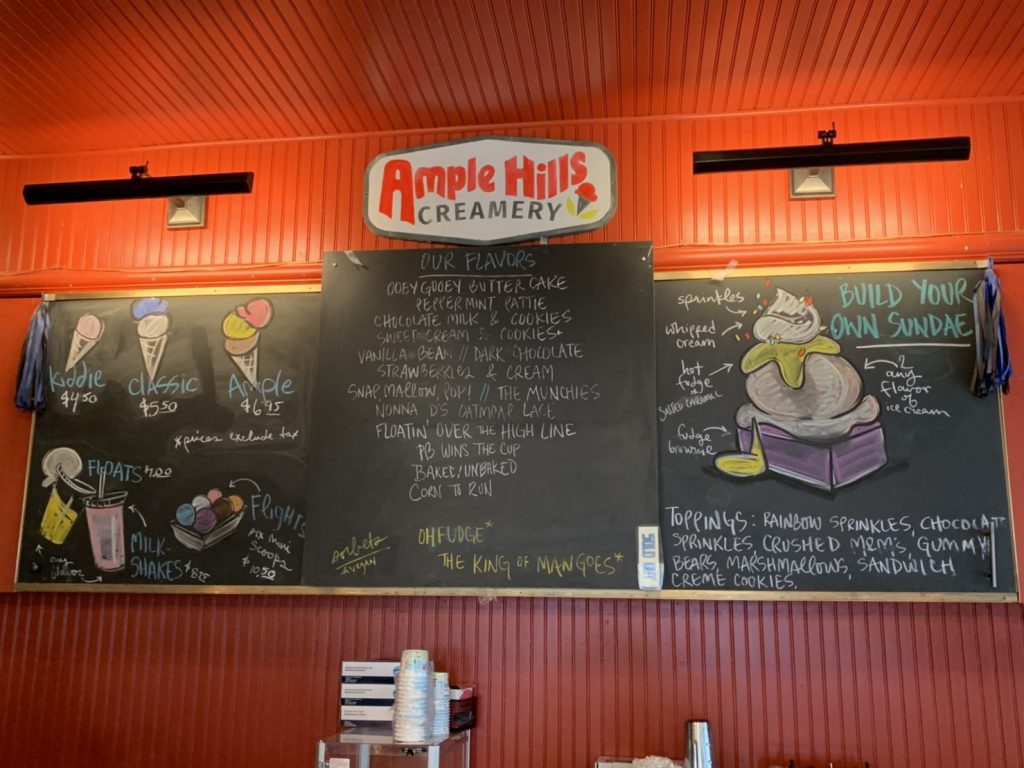 AMPLE HILLS
CREAMERY
OUR FLAVORS
OOEY GOOEY BUTTER CAKE
PEPPERMINT PATTIE
CHOCOLATE MILK & COOKIES
SWEET CREAM & COOKIES
VANILLA BEAN // DARK CHOCOLATE
STRAWBERRIES & CREAM
SNAP, MALLOW, POP! // THE MUNCHIES
NONNA D'S OATMEAL LACE
FLOATIN' OVER THE HIGH LINE
PB WINS THE CUP
BAKED/UNBAKED
CORN TO RUN
sorbets
*VEGAN
OH FUDGE*
THE KING OF MANGOES*
SOLD OUT
kiddie
$4.50
classic
$5.50
Ample
$6.95
*prices exclude tax
FLOATS 7.00
any
flavor
MILK-
SHAKES
Flights
six mini
scoops
$10.50
BUILD YOUR
OWN SUNDAE
sprinkles
whipped
cream
hot
fudge
or
SALTED CARAMEL
fudge
brownie
2
any
flavor
of
ice cream
TOPPINGS: RAINBOW SPRINKLES, CHOCOLATE
SPRINKLES, CRUSHED M&M'S, GUMMY
BEARS, MARSHMALLOWS, SANDWICH
CREME COOKIES.